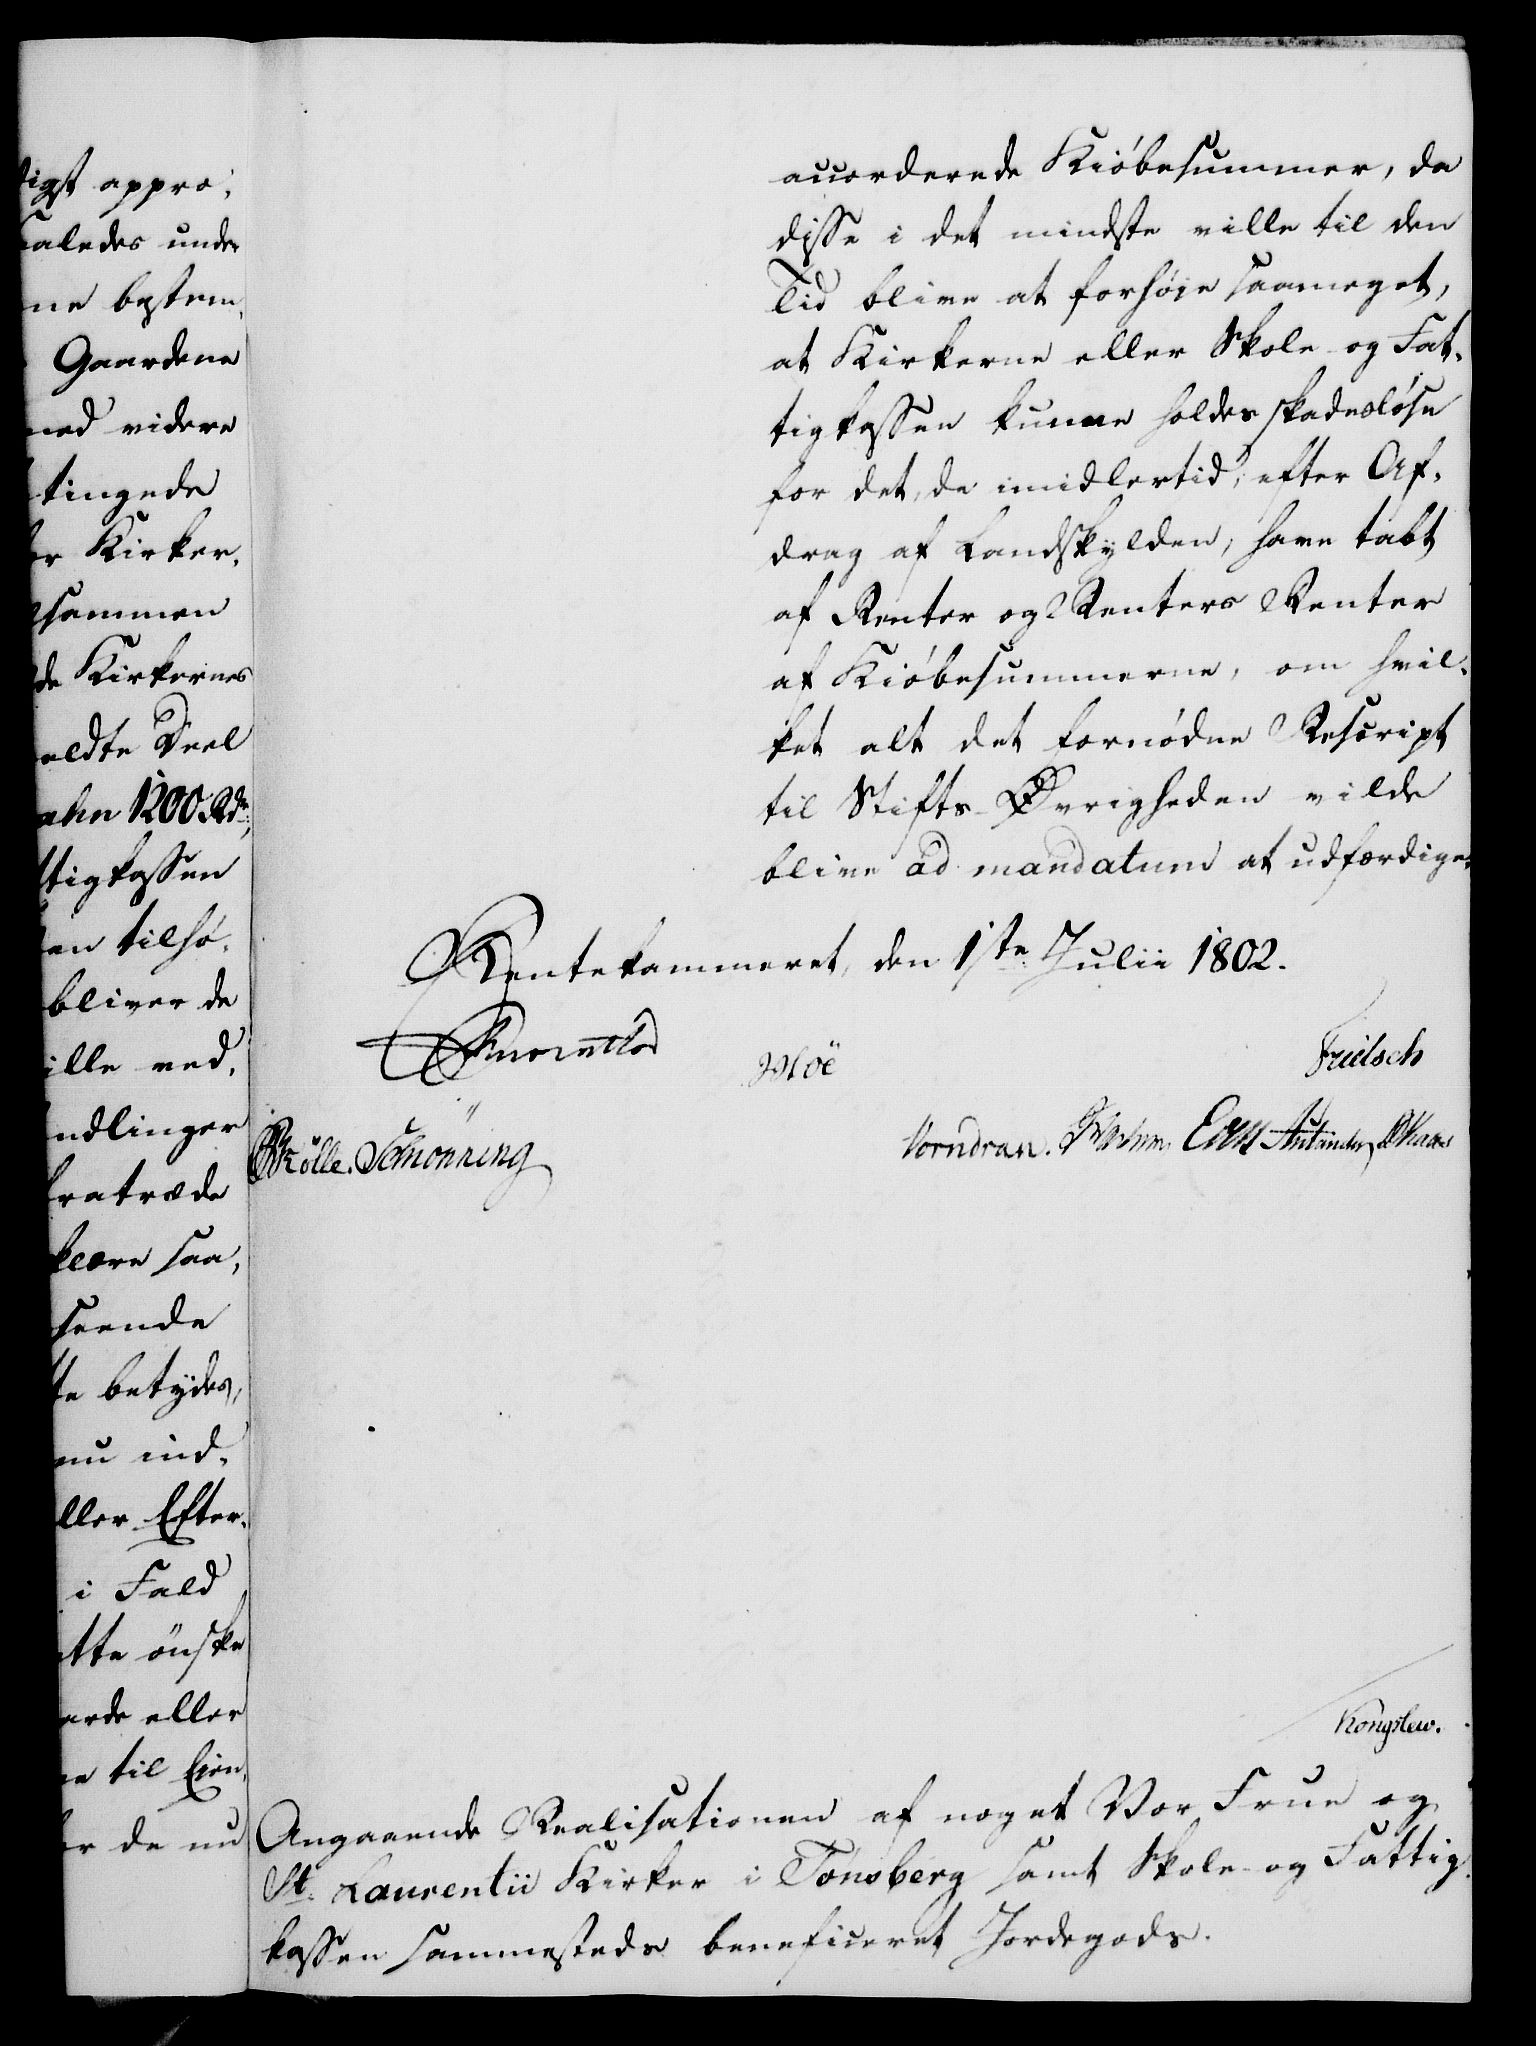 digst appro,
saaledes under
ne bestem,
Gaardene
med videre
tingede
er Kirker,
sammen
de Kirkernes
meldte Deel
ahn 1200 Rdr,
ttigkassen
en tilhø,
bliver de
ille ved,
ndlinger
fratræde
klære saa,
seende
te betydes,
nu ind,
ller Efter,
i Fald
tte ønske
arde eller
ne til Eien,
er de nu
accorderede Kiøbesummer, da
disse i det mindste ville til den
Tid blive at forhøje saameget,
at Kirkerne eller Skole- og Fat,
tigkassen kunne holdes skadesløse
for det, de imidlertid, efter Af,
drag af Landskylden, have tabt
af Renter og Renters Renter
af Kiøbesummerne, om hvil,
ket alt det fornødne Rescript
til Stifts-Øvrigheden vilde
blive ad mandatum at udfærdige.
Rentekammeret, den 1ste Julii 1802.
Moë Frielsch
Kölle. Schönning Vorndran.
Kongslew.
Angaaende Realisationen af noget Vor Frue og
St. Laurentii Kirker i Tønsberg samt Skole- og Fattig,
kassen sammesteds beneficeret Jordegods.